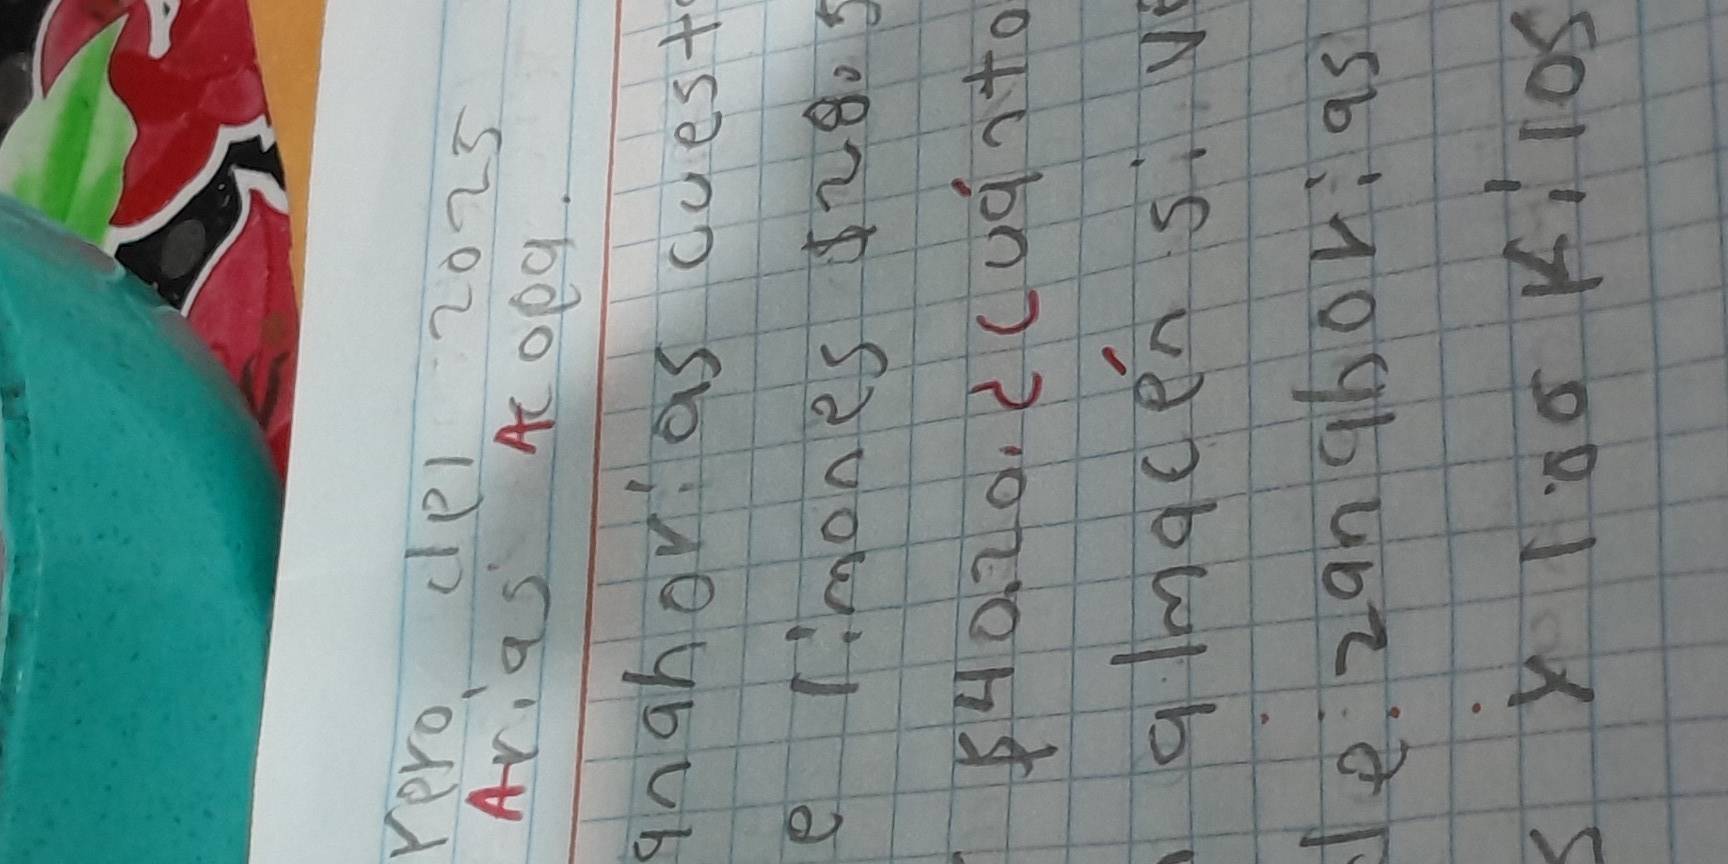 rero del 2025
Arias Acopa.
anahorias cuest
e limones $28.5
$40.20. ¿cuánto
almacén si v
de zanahorias
s y 100 kilos